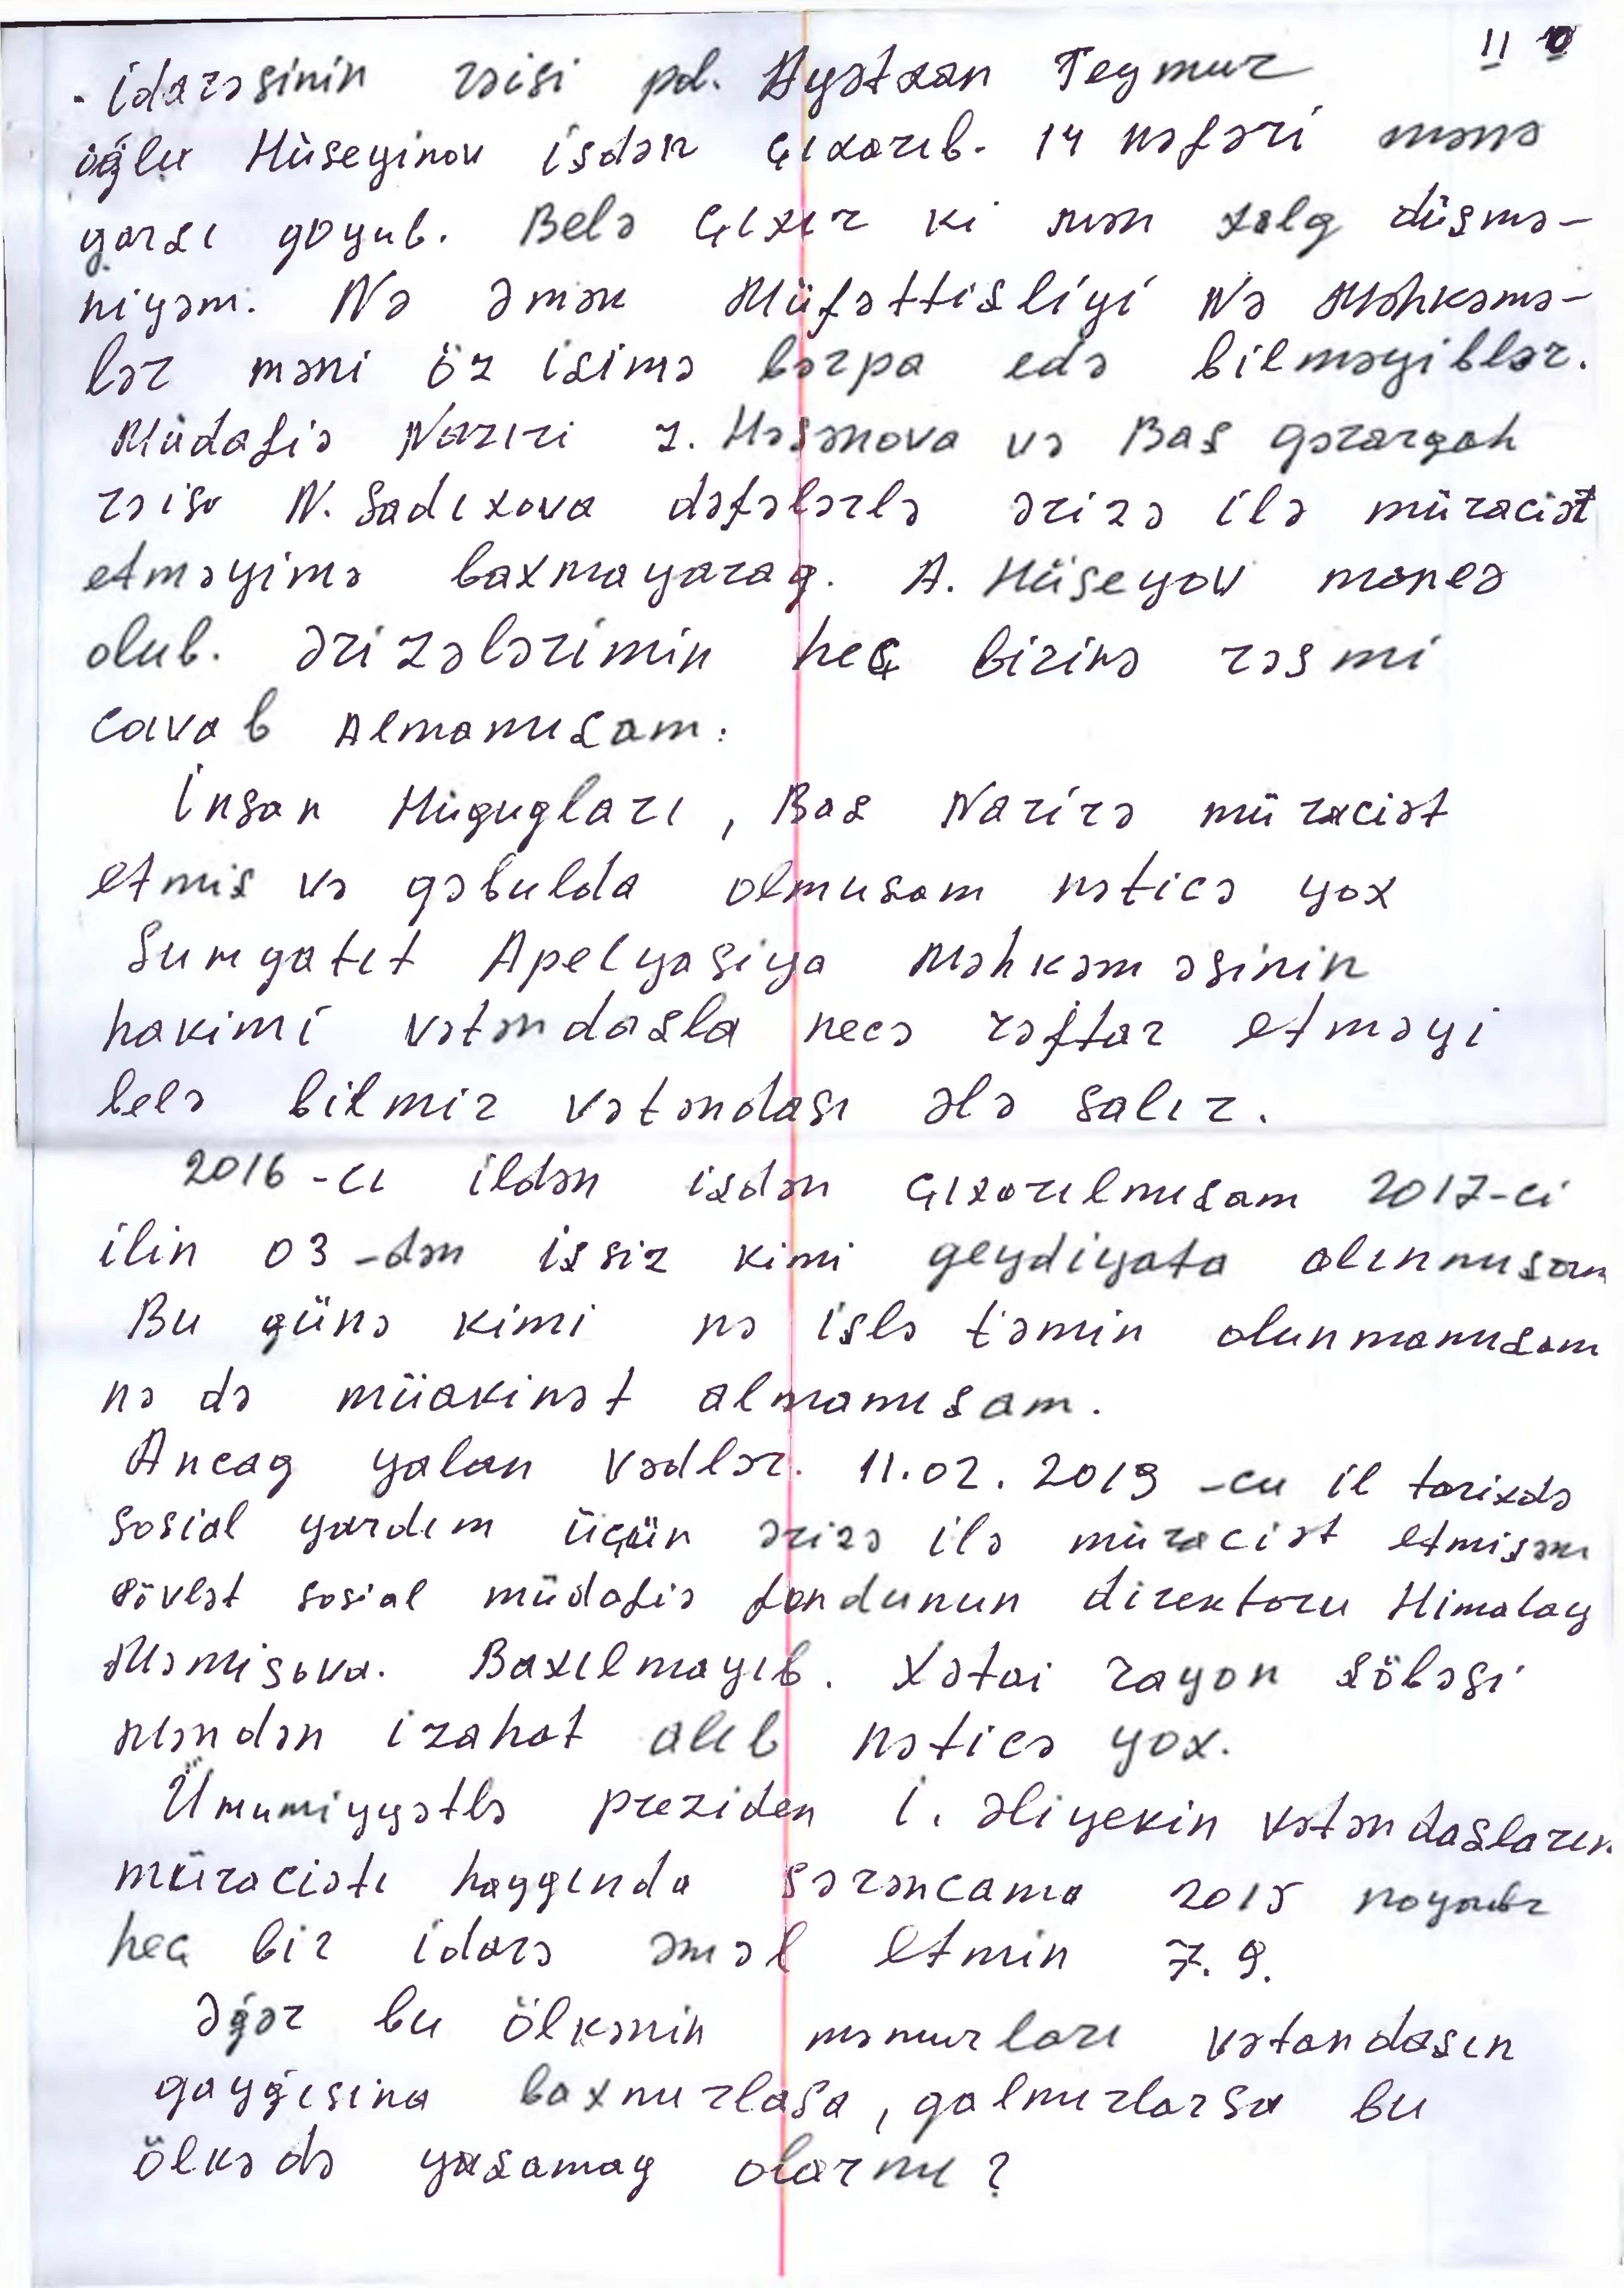 11
- idarəsinin rəisi pol. Ayətxan Teymur
oğlu Hüseyinov işdən çıxarıb. 14 nəfəri mənə
garşı goyub. Belə çıxır ki mən xalg düşmə-
niyəm. Nə əmək Müfəttişliyi Nə Məhkəmə-
lər məni öz işimə bərpa edə bilməyiblər.
Müdafiə Naziri Z. Həsənova və Baş gərargah
rəisə N. Sadıxova dəfələrlə ərizə ilə müraciət
etməyimə baxmayarag. A. Hüseyov maneə
olub. Ərizələrimin heç birinə rəsmi
cavab Almamışam.
İnsan Hügugları, Baş Nazirə müraciət
etmiş və gəbulda olmuşam nəticə yox
Sumgatıt Apelyasiya Məhkəməsinin
hakimi vətəndaşla necə rəftar etməyi
belə bilmir vətəndaşı ələ salır.
2016-cı ildən işdən çıxarılmışam 2017-ci
ilin 03-dən işsiz kimi geydiyata alınmışam
Bu günə kimi nə işlə təmin olunmamışam
nə də müavinət almamışam.
Ancag yalan vədlər. 11.02.2019-cu il tarixdə
sosial yardım üçün ərizə ilə müraciət etmişəm
dövlət sosial müdafiə fondunun direktoru Himalay
Məmişova. Baxılmayıb. Xətai rayon şöbəsi
Məndən izahat alıb nəticə yox.
Ümumiyyətlə preziden İ. Əliyevin vətəndaşların
müraciəti haggında sərəncama 2015 noyabr
heç bir idarə əməl etmin 7.9.
Əgər bu ölkənin məmurları vətandaşın
gayğısına baxmırlasa, galmırlarsa bu
ölkədə yaşamag olarmı?